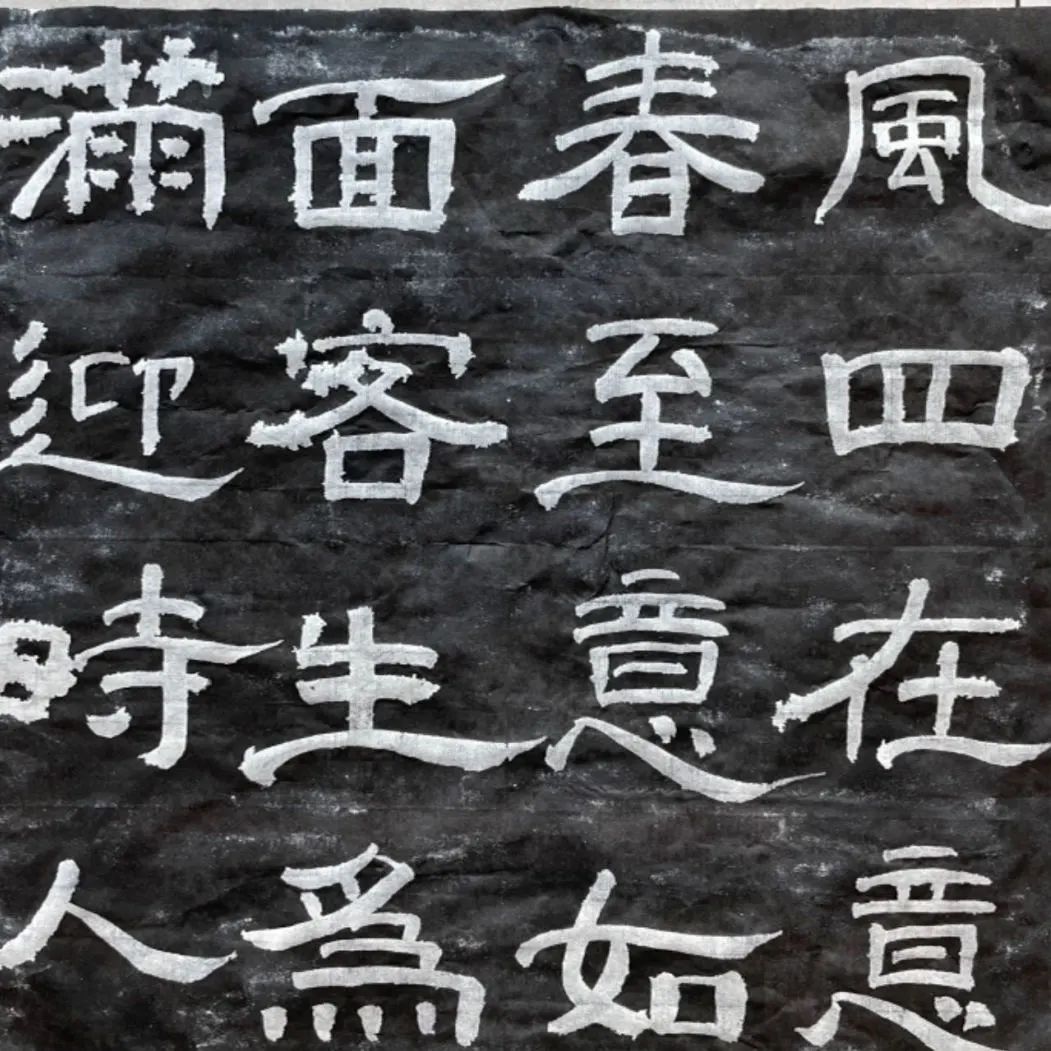 滿面春風
迎客至四
時生意在
人爲如意